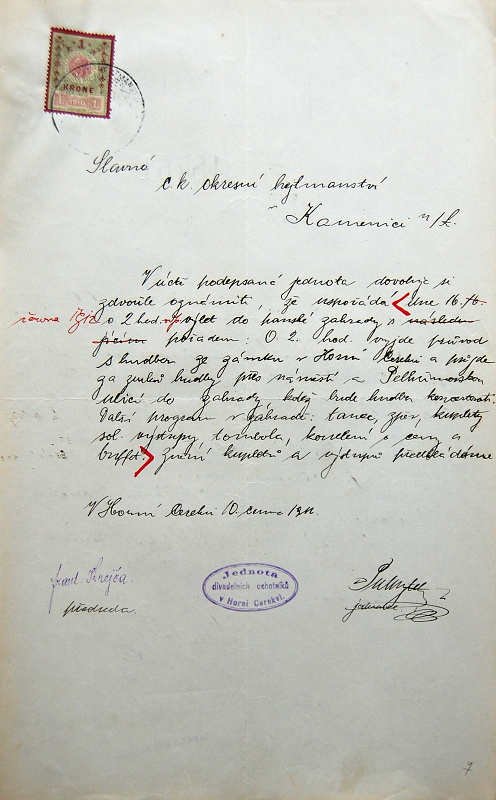 1
KRONE
1 1910 1
Slavné
c. k. okresní hejtmanství
v Kamenici n/L.
V úctě podepsaná jednota dovoluje si
zdvořile oznámiti, že uspořádá dne 16. t.
června 1912 o 2 hod. odp. výlet do panské zahrady s následu-
jícím pořadem: O 2. hod. vyjde průvod
s hudbou ze zámku v Horní Cerekvi a půjde
za zvuků hudby přes náměstí a Pelhřimovskou
ulicí do zahrady, kdež bude hudba koncertovati.
Další program v zahradě: tanec, zpěv, kuplety
sol. výstupy, tombola, koulení o ceny a
buffet. Znění kupletů a výstupů předkládáme
V Horní Cerekvi 10. června 1912.
Krejča
předseda.
Jednota
divadelních ochotníků
v Horní Cerekvi.
jednatel
7